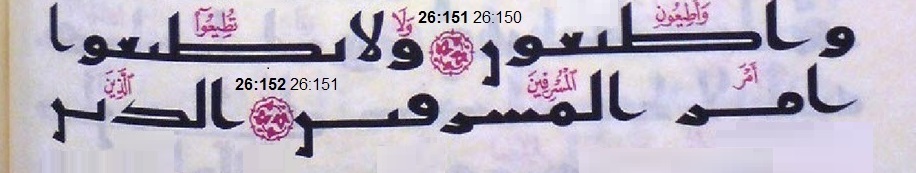 وَأَطِيعُونِ وَلَا 26:151 26:150 تُطِيعُوٓا
واطيعون ولا تطيعوا
أَمْرَ الْمُسْرِفِينَ 26:152 26:151 الَّذِينَ
امر المسرفين الذين